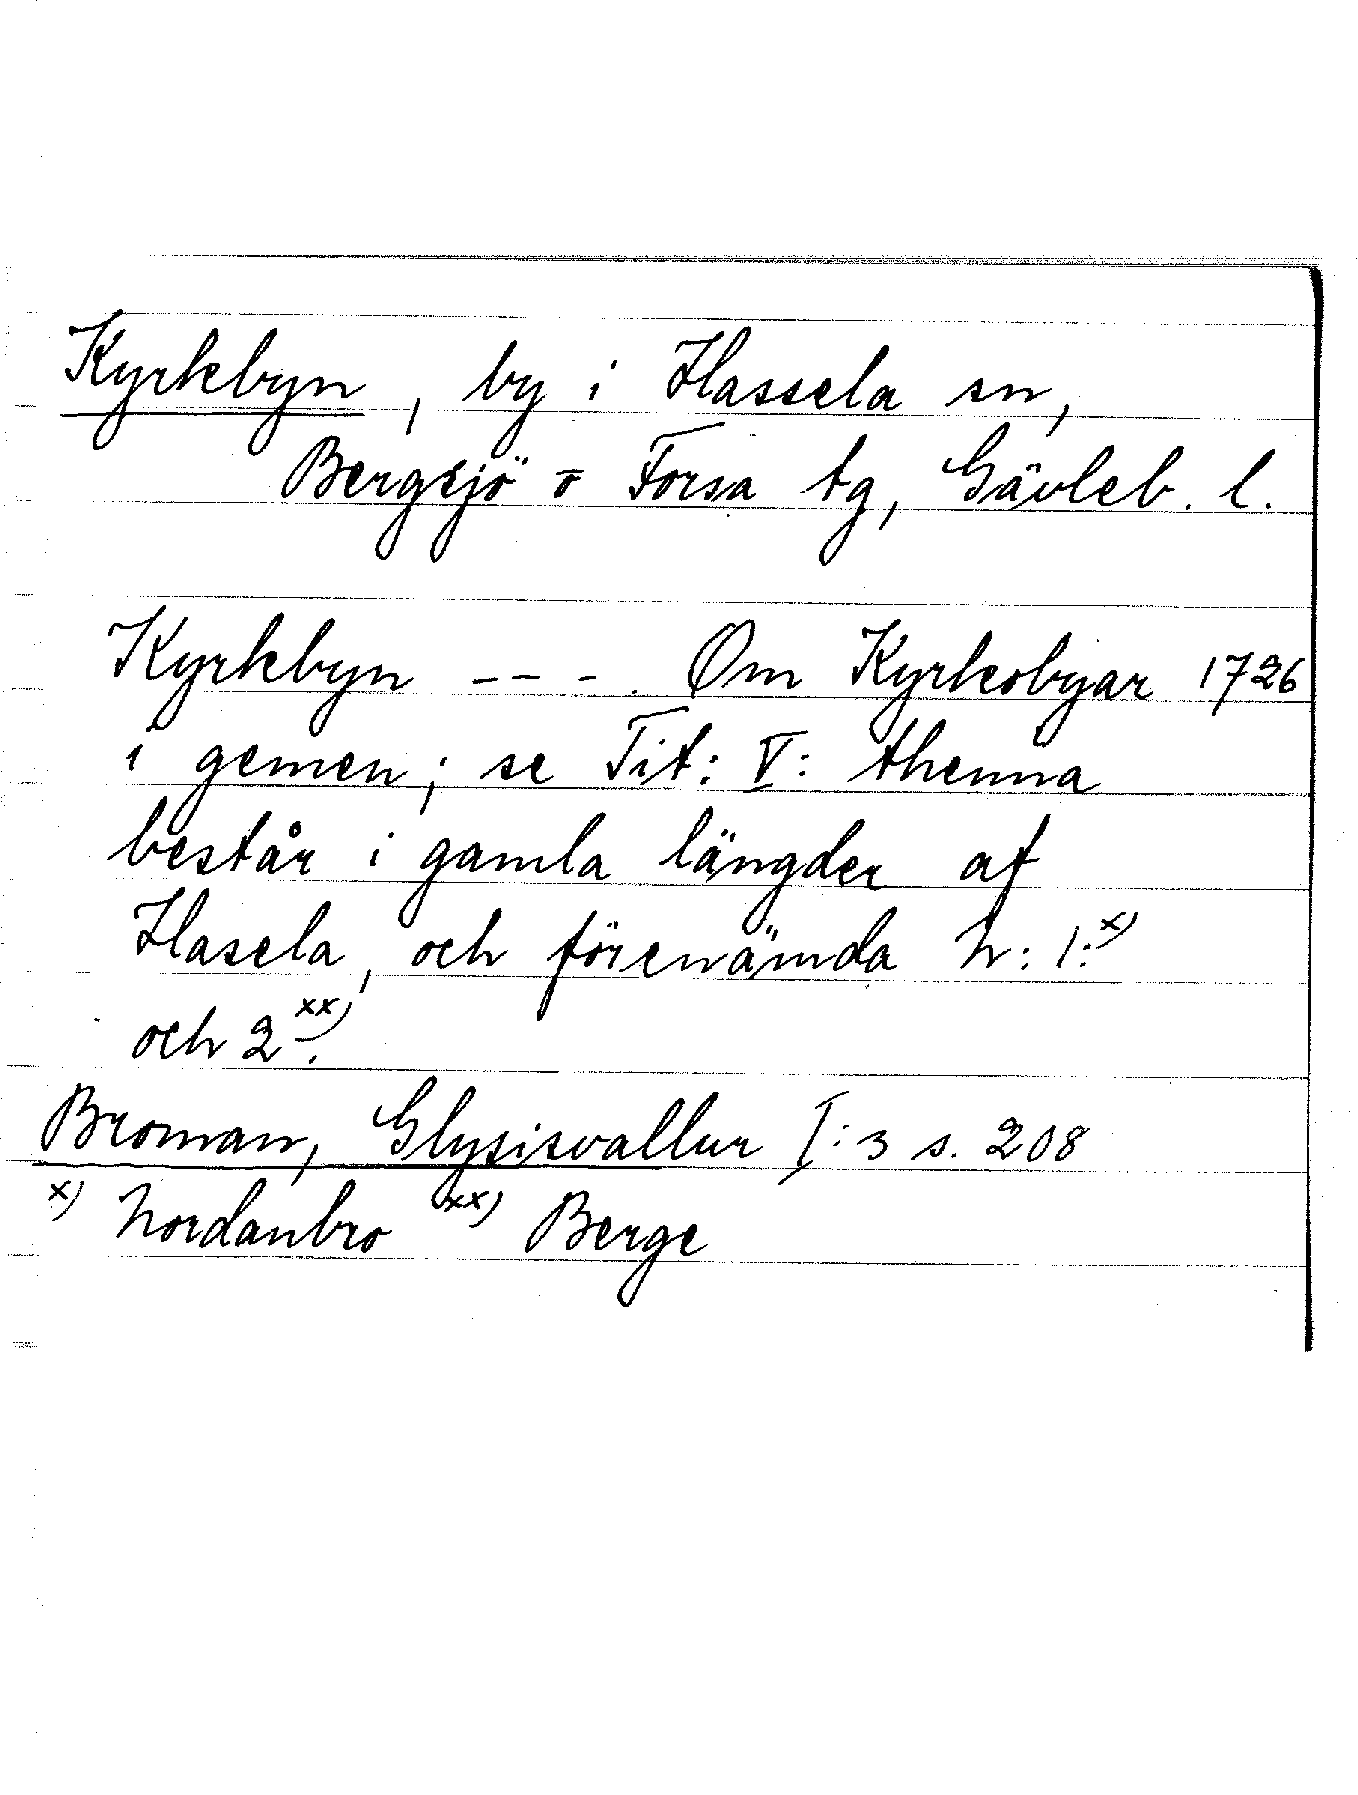 Kyrkbyn, by i Hassela sn,
Bergsjö o Forsa tg, Gävleb. l.
Kyrkbyn ---. Om Kyrkobyar 1726
i gemen; se Tit: V: thenna
består i gamla längder af
Hasela, och förenämda N: 1:x)
och 2xx).
Broman, Glysisvallur I:3 s. 208
x) Nordanbro xx) Berge